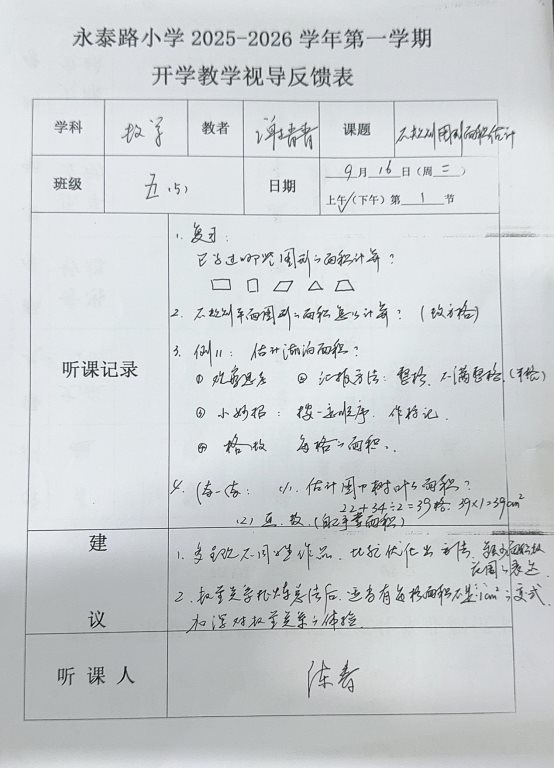 永泰路小学 2025-2026 学年第一学期
开学教学视导反馈表
学科 数学 教者 谭青青 课题 不规则图形面积估计
班级 五(5) 日期 9月16日(周二)
上午√(下午)第1节
听课记录
1. 复习:
已学过哪些图形的面积计算?
2. 不规则平面图形的面积怎么计算?(数方格)
3. 例11: 估计湖泊面积?
① 观察思考 ② 汇报方法: 整格、不满整格(半格)
③ 小妙招: 按一定顺序、作标记.
④ 格数 每格的面积..
4. 练一练: (1). 估计图中树叶的面积?
22+34÷2=39格 39×1=39cm²
(2) 画、数.(自己手掌面积)
建议
1. 多呈现不同学生作品, 比较优化出方法,
范围的表达
2. 数量关系提炼总结后, 还应有每格面积不是1cm²的变式,
加深对数量关系的体验.
听课人 陈青